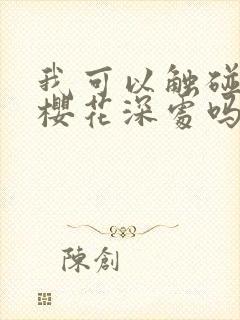 我可以触碰
櫻花深處吗
陳創